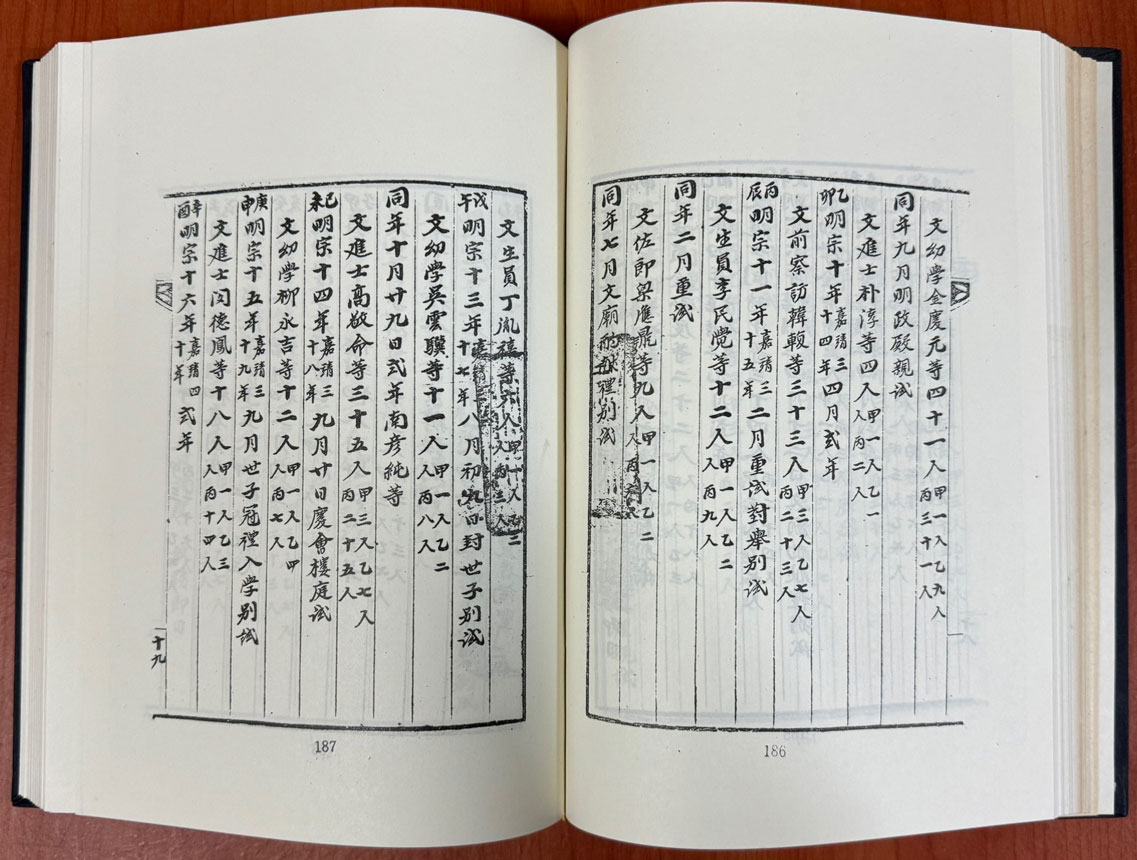 文幼學金慶元等四十一人甲一人乙九人丙三十一人
同年九月明政殿親試
文進士朴淳等四人甲一人乙一人丙二人
乙卯明宗十年嘉靖三十四年四月式年
文前察訪韓輹等三十三人甲三人乙七人丙二十三人
丙辰明宗十一年嘉靖三十五年二月重試對舉別試
文生員李民覺等十二人甲一人乙二人丙九人
同年二月重試
文佐郎梁應鼎等九人甲一人乙二人丙六人
同年七月文廟酌獻禮別試
186
文生員丁胤禧等
戊午明宗十三年嘉靖三十七年八月初九日封世子別試
文幼學吳雲驥等十一人甲一人乙二人丙八人
同年十月廿九日式年南彥純等
文進士高敬命等三十五人甲三人乙七人丙二十五人
己未明宗十四年嘉靖三十八年九月廿日慶會樓庭試
文幼學柳永吉等十二人甲一人乙四人丙七人
庚申明宗十五年嘉靖三十九年九月世子冠禮入學別試
文進士閔德鳳等十八人甲一人乙三人丙十四人
辛酉明宗十六年嘉靖四十年式年
十九
187